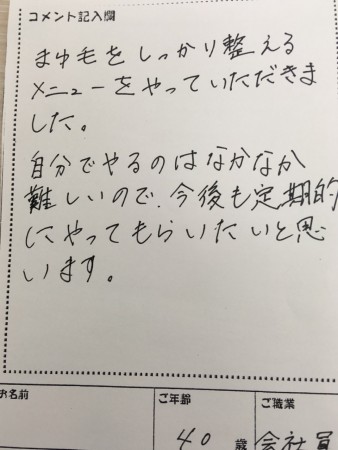 コメント記入欄
まゆ毛をしっかり整える
メニューをやっていただきま
した。
自分でやるのはなかなか
難しいので、今後も定期的
にやってもらいたいと思
います。
お名前
ご年齢
ご職業
40 歳
会社員